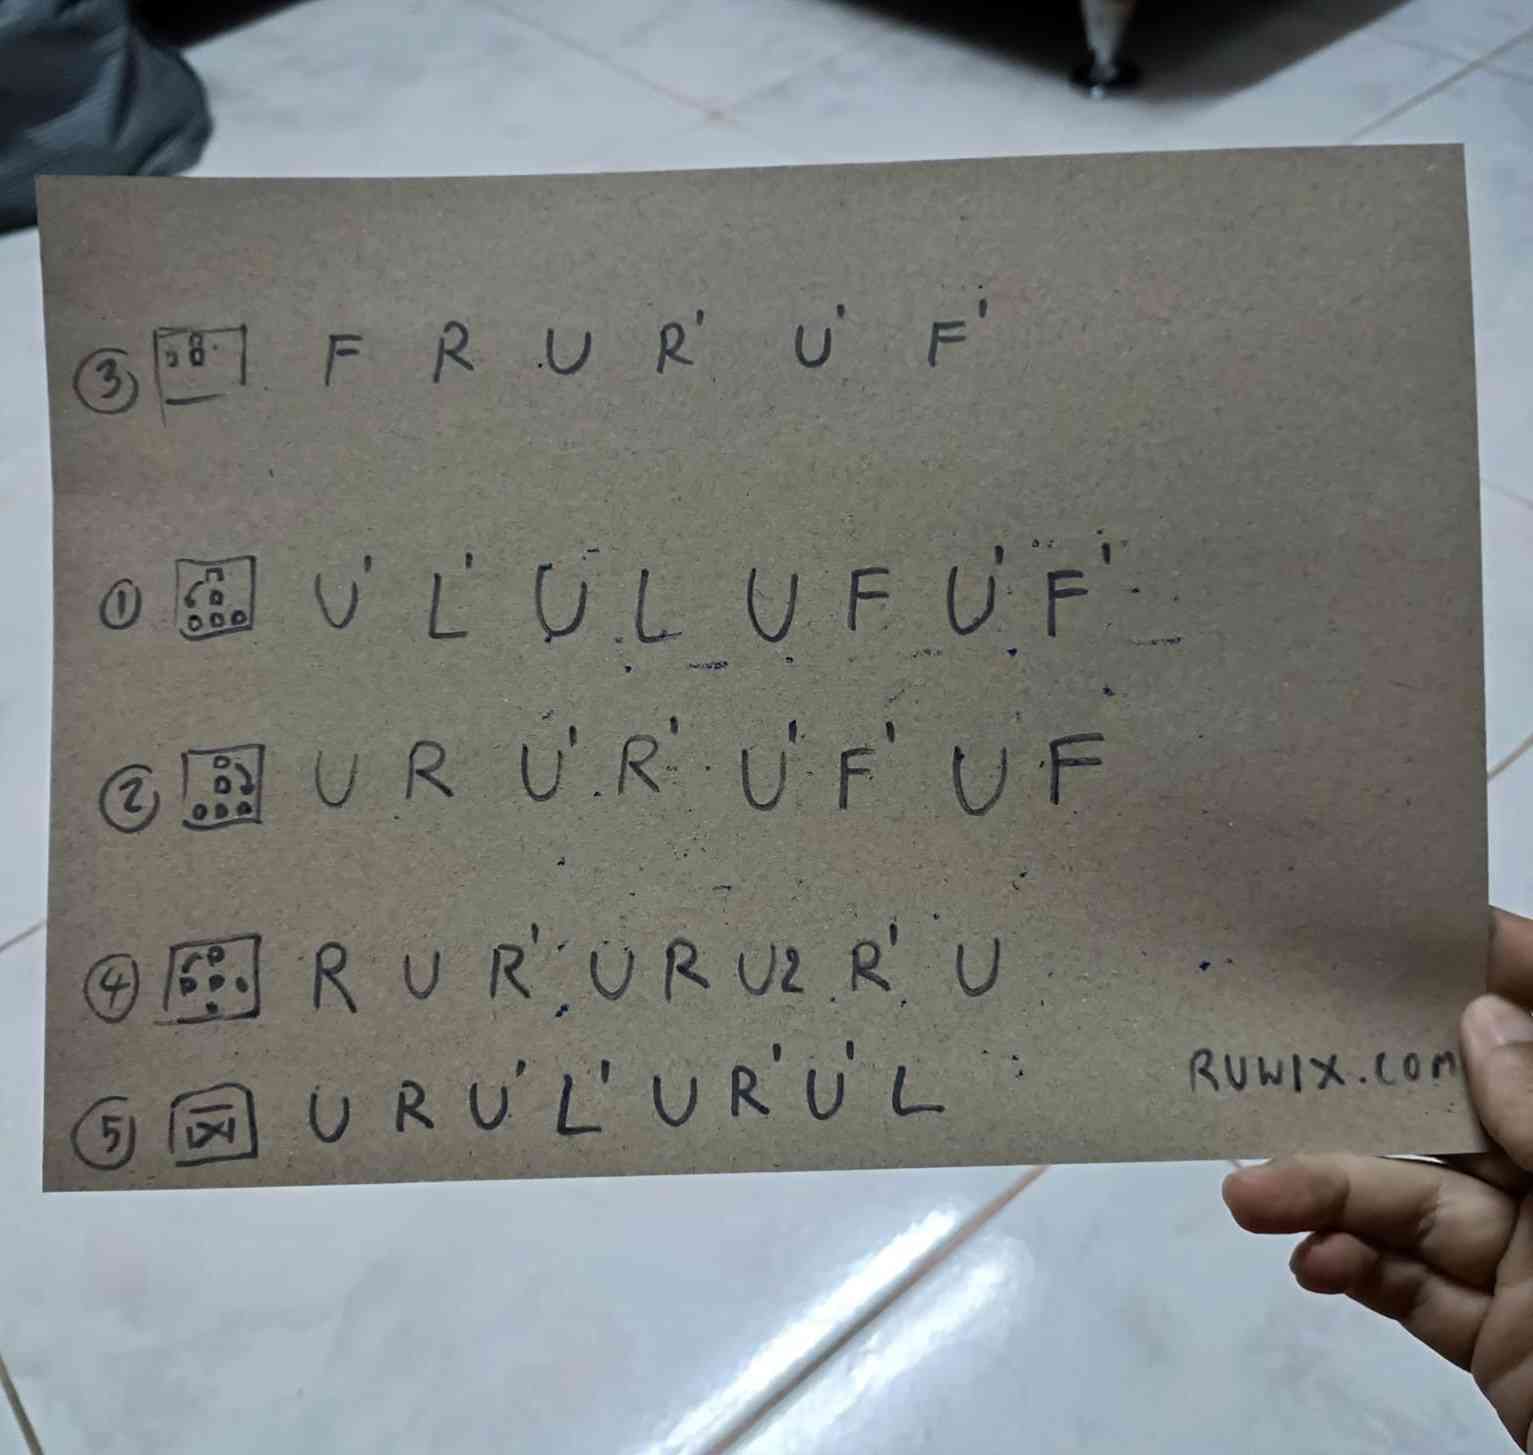 ③ F R U R' U' F'
① U' L' U L U F U' F'
② U R U' R' U' F' U F
④ R U R' U R U2 R' U
⑤ U R U' L' U R' U' L
RUWIX.COM